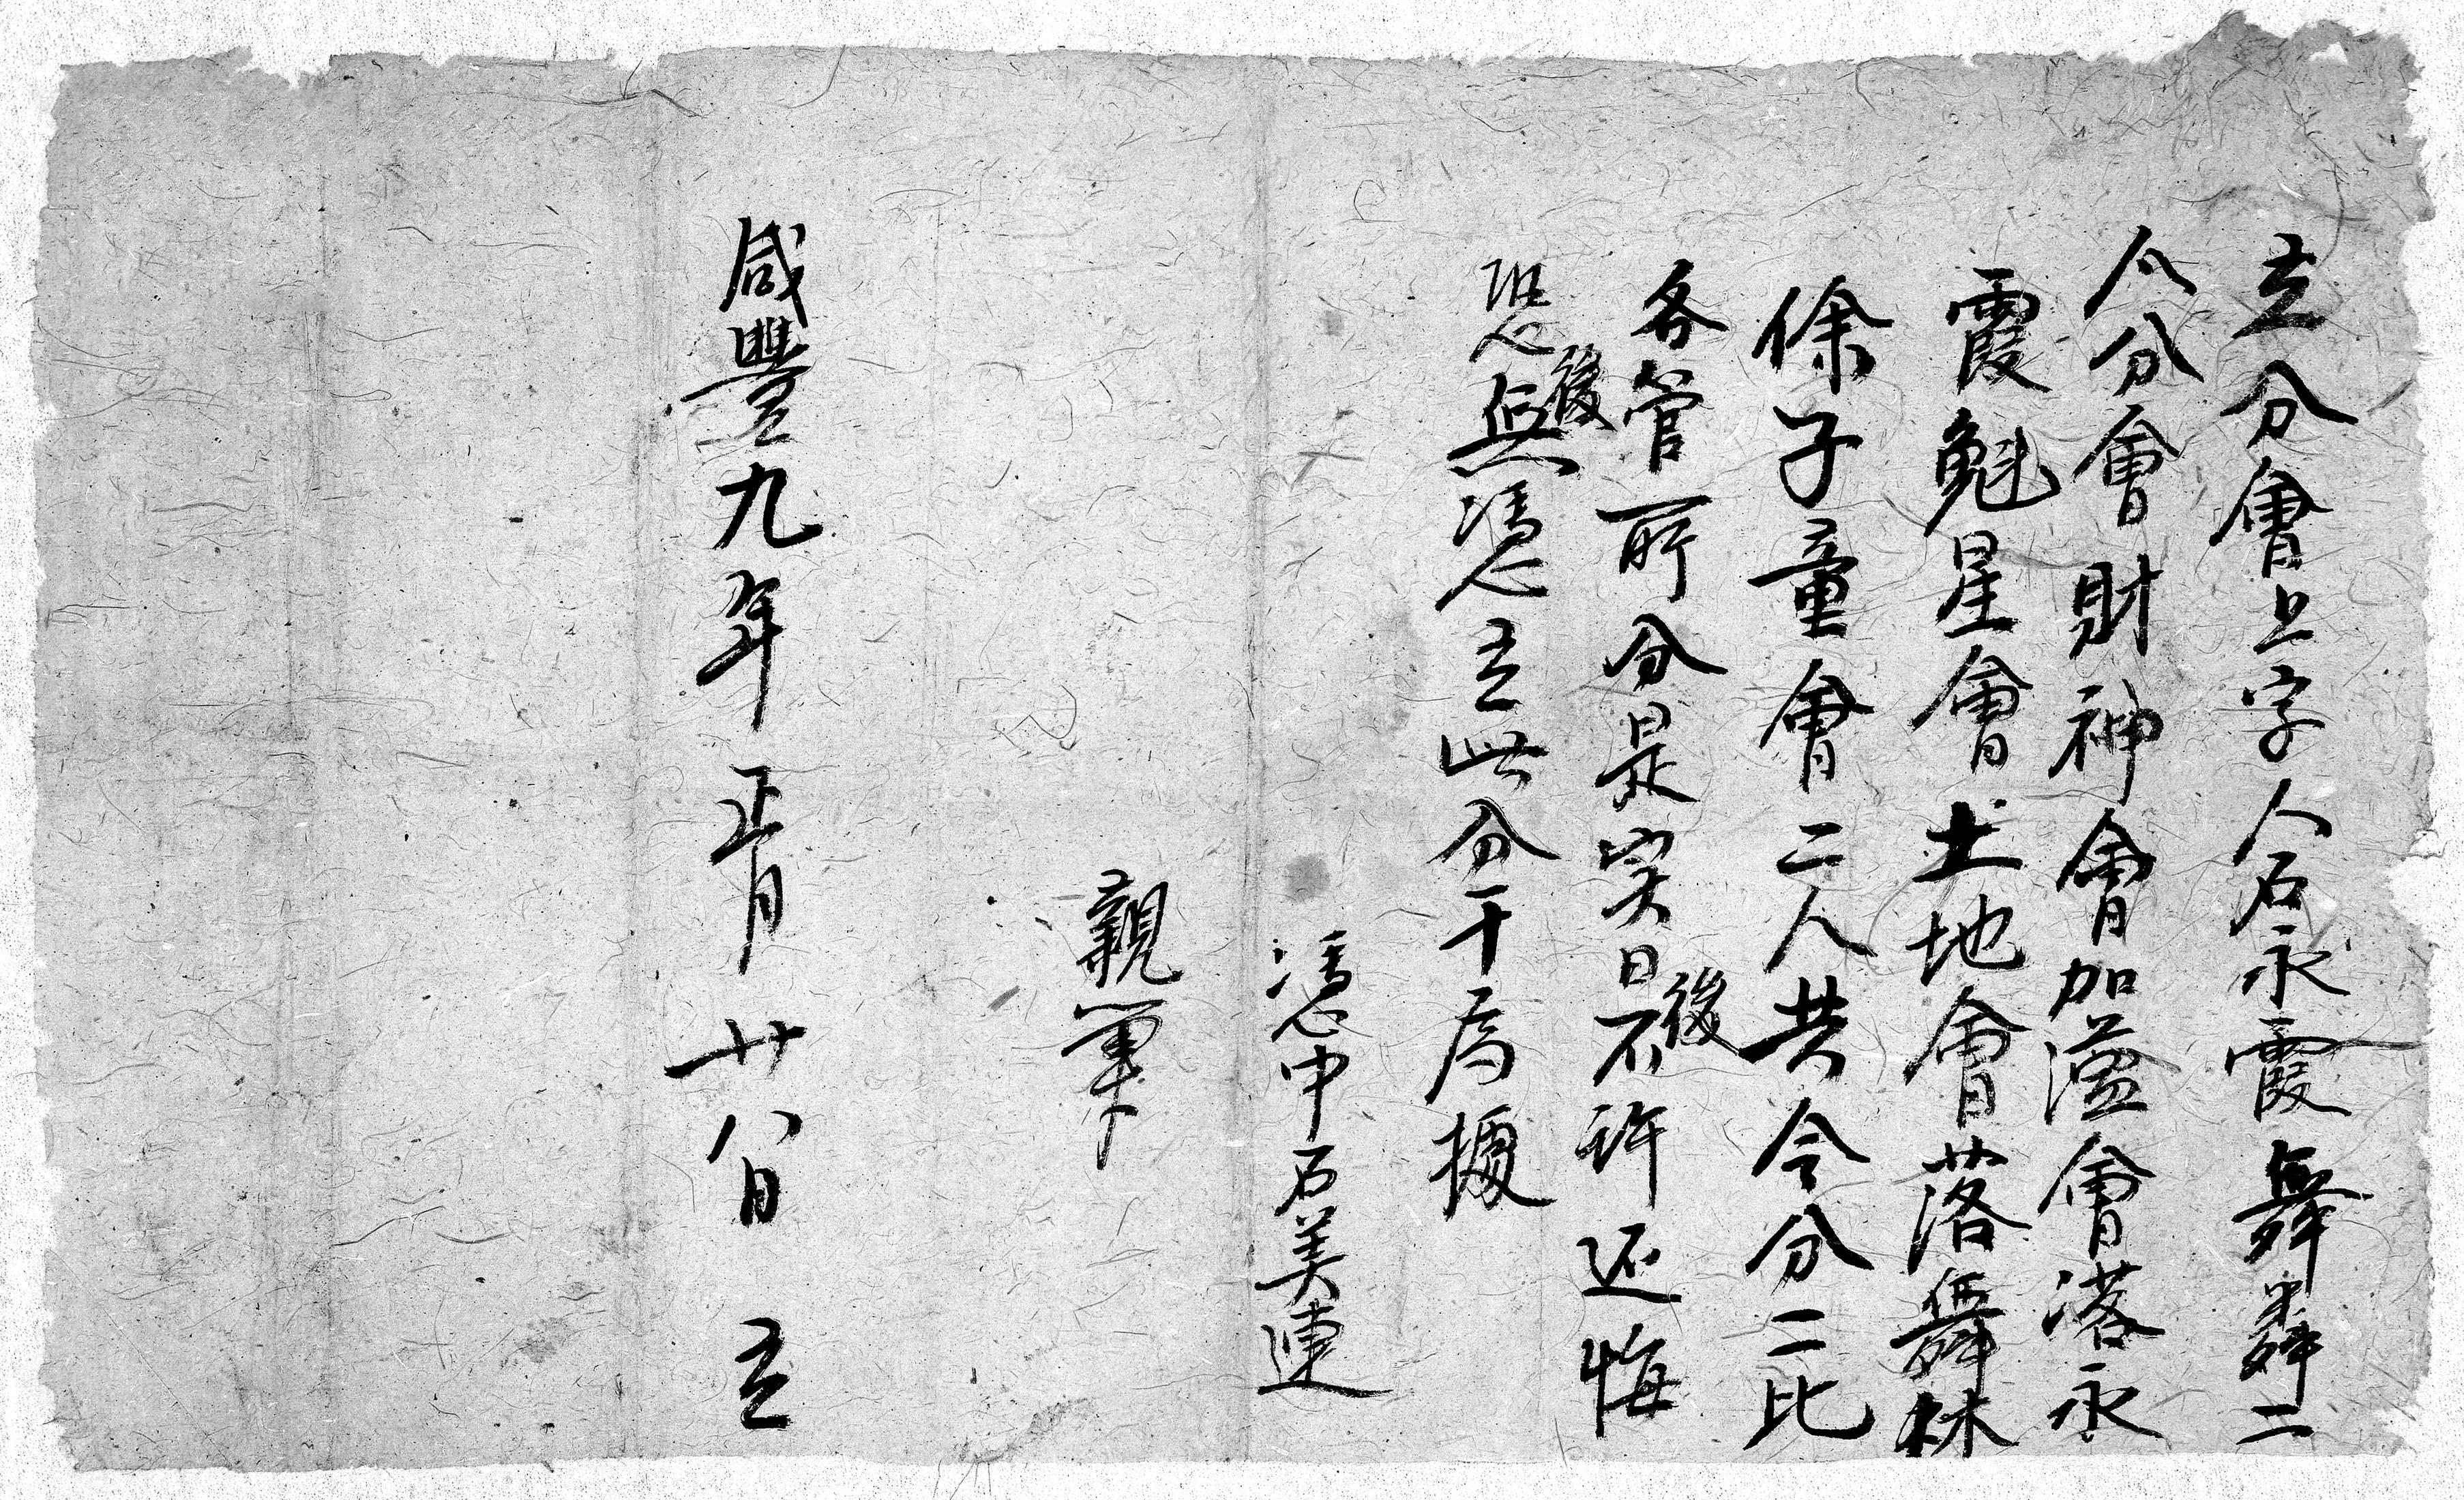 立分會上字人石永霞舜舞二
人分會財神會加溢會落永
霞魁星會土地會落舜林
徐子童會二人共令分二比
各管所分是实日後不許返悔
恐後無憑立此分干為據
憑中石美連
親筆
咸豐九年正月廿八日立